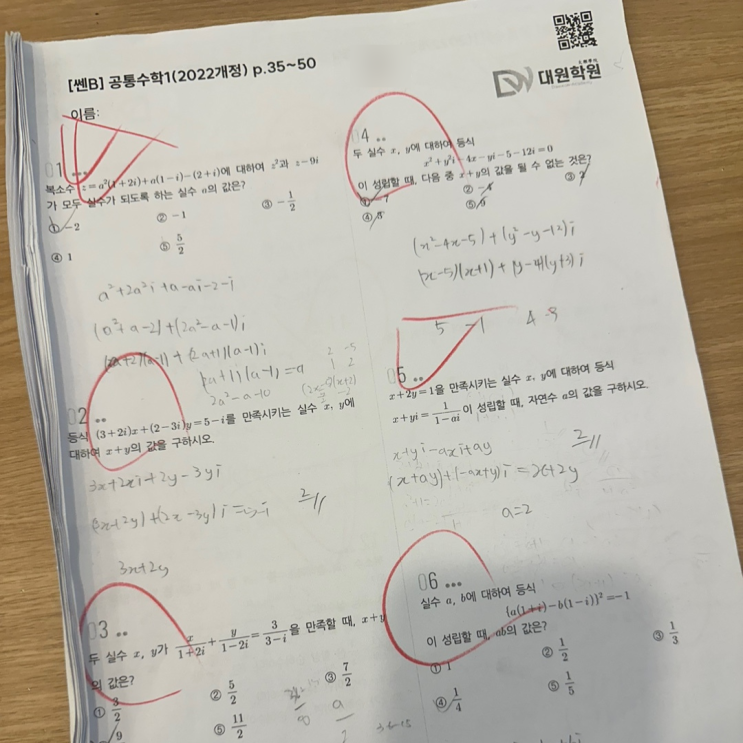 [쎈B] 공통수학1(2022개정) p.35~50
대원학원
이름:
01
복소수 z=a²(1+2i)+a(1-i)-(2+i)에 대하여 z²과 z-9i
가 모두 실수가 되도록 하는 실수 a의 값은?
① -2
② -1
③ -1/2
④ 1
⑤ 5/2
a²+2a²i+a-ai-2-i
(a²+a-2)+(2a²-a-1)i
(a+2)(a-1)+(2a+1)(a-1)i
(2a+1)(a-1)=a
02
등식 (3+2i)x+(2-3i)y=5-i를 만족시키는 실수 x, y에
대하여 x+y의 값을 구하시오.
3x+2xi+2y-3yi
(3x+2y)+(2x-3y)i
2
3x+2y
03
두 실수 x, y가 x/(1+2i)+y/(1-2i)=3/(3-i)을 만족할 때, x+y
의 값은?
① 3/2
② 5/2
③ 7/2
9
⑤ 11/2
04
두 실수 x, y에 대하여 등식
x²+y²i-4x-yi-5-12i=0
이 성립할 때, 다음 중 x+y의 값을 될 수 없는 것은?
① -7
② -4
③ 2
④ 8
⑤ 9
(x²-4x-5)+(y²-y-12)i
(x-5)(x+1)+(y-4)(y+3)i
5 -1 4 -3
05
x+2y=1을 만족시키는 실수 x, y에 대하여 등식
x+yi=1/(1-ai)이 성립할 때, 자연수 a의 값을 구하시오.
x+yi-axi+ay
2
(x+ay)+(-ax+y)i=x+2y
a=2
06
실수 a, b에 대하여 등식
{a(1+i)-b(1-i)}²=-1
이 성립할 때, ab의 값은?
① 1
② 1/2
③ 1/3
④ 1/4
⑤ 1/5